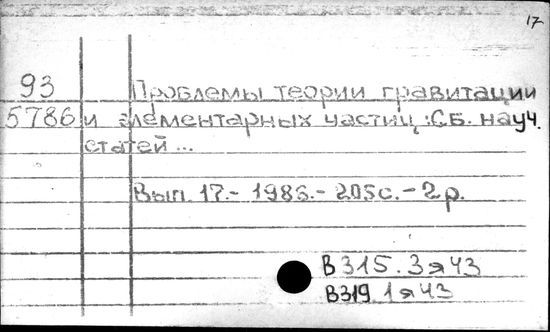 17
93 Проблемы теории гравитации
5786 и элементарных частиц :Сб. науч.
статей ...
Вып. 17.- 1986.- 205с.- 2р.
В315.3я43
В319.1я43